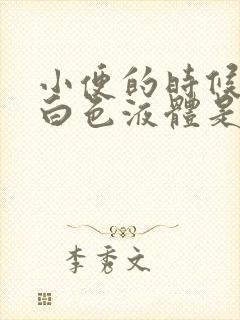 小便的時候
白色液體是
李秀文